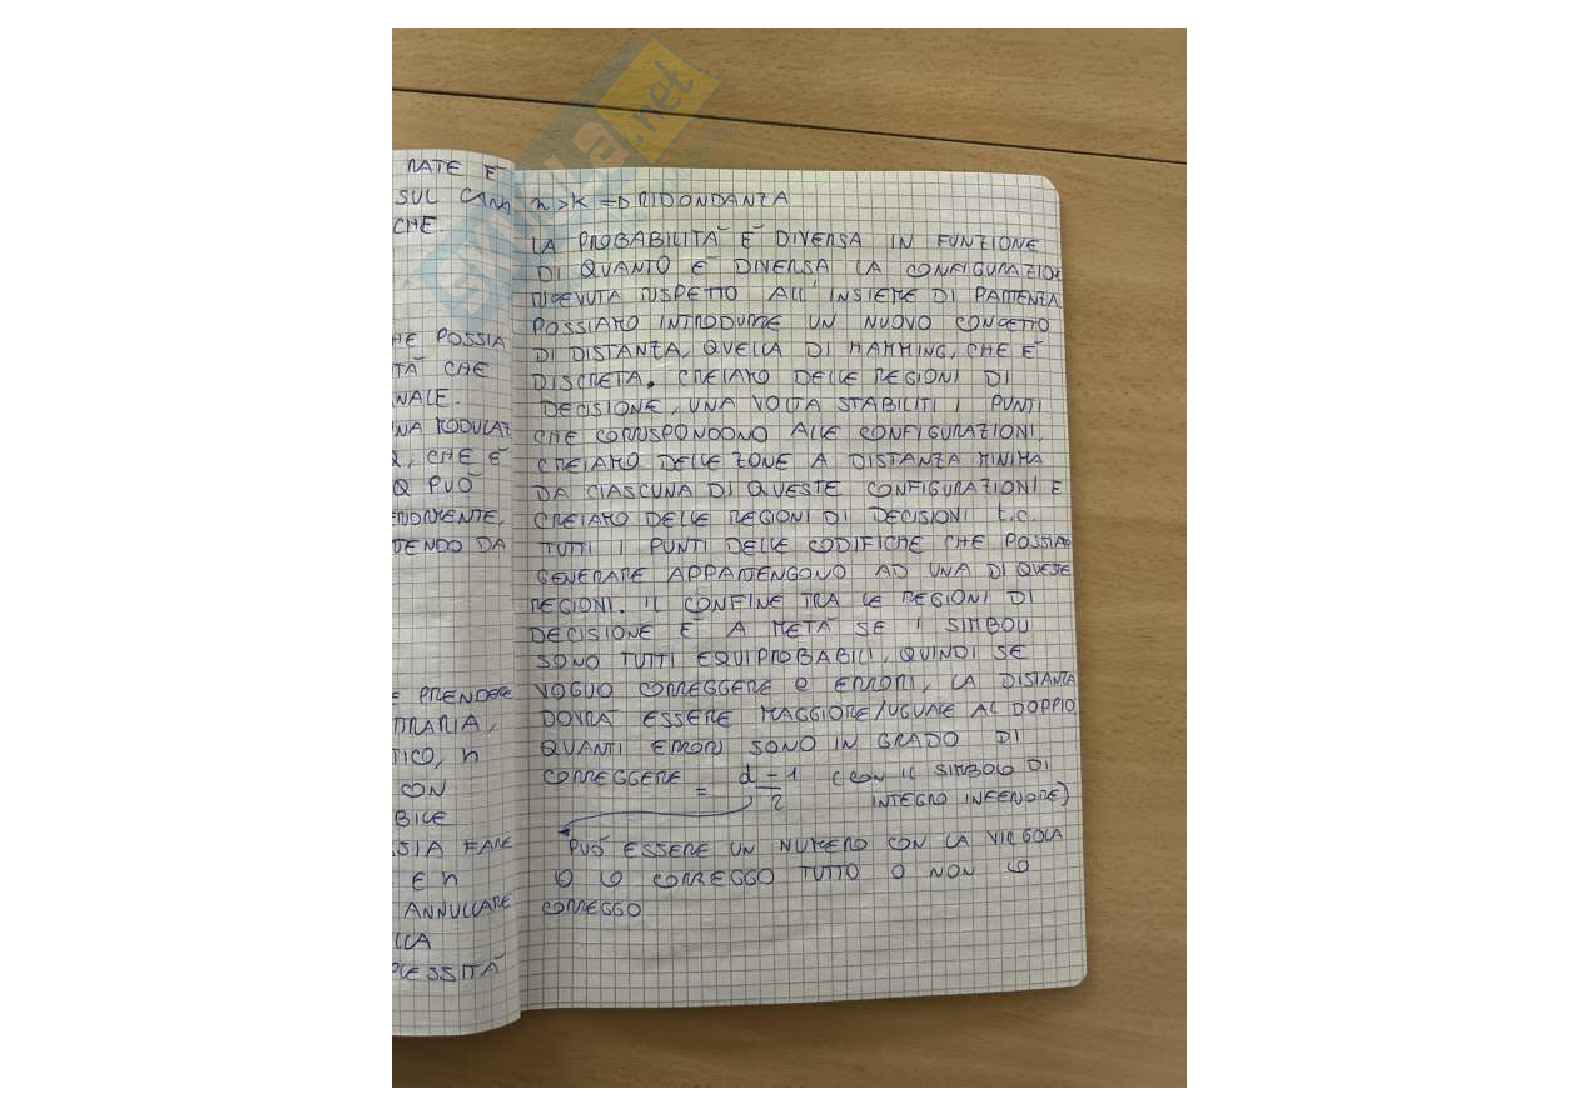 RATE È
SUL CAN
CHE
HE POSSIA
TÀ CHE
NALE.
NA MODULAZ
2, CHE È
Q PUÒ
ENDMENTE,
DENDO DA
E PRENDERE
TRARIA,
TICO, n
CON
BILE
SIA FARE
E n
ANNULLARE
LLA
PLESSITÀ
n>k => RIDONDANZA
LA PROBABILITÀ È DIVERSA IN FUNZIONE
DI QUANTO È DIVERSA LA CONFIGURAZION
RICEVUTA RISPETTO ALL'INSIEME DI PARTENZA
POSSIAMO INTRODURRE UN NUOVO CONCETTO
DI DISTANZA, QUELLA DI HAMMING, CHE È
DISCRETA. CREIAMO DELLE REGIONI DI
DECISIONE, UNA VOLTA STABILITI I PUNTI
CHE CORRISPONDONO ALLE CONFIGURAZIONI,
CREIAMO DELLE ZONE A DISTANZA MINIMA
DA CIASCUNA DI QUESTE CONFIGURAZIONI E
CREIAMO DELLE REGIONI DI DECISIONI t.c.
TUTTI I PUNTI DELLE CODIFICHE CHE POSSIAMO
GENERARE APPARTENGONO AD UNA DI QUESTE
REGIONI. IL CONFINE TRA LE REGIONI DI
DECISIONE È A METÀ SE I SIMBOLI
SONO TUTTI EQUIPROBABILI, QUINDI SE
VOGLIO CORREGGERE e ERRORI, LA DISTANZA
DOVRÀ ESSERE MAGGIORE/UGUALE AL DOPPIO
QUANTI ERRORI SONO IN GRADO DI
CORREGGERE = d-1/2 (CON IL SIMBOLO DI
INTERO INFERIORE)
PUÒ ESSERE UN NUMERO CON LA VIRGOLA
O LO CORREGGO TUTTO O NON LO
CORREGGO